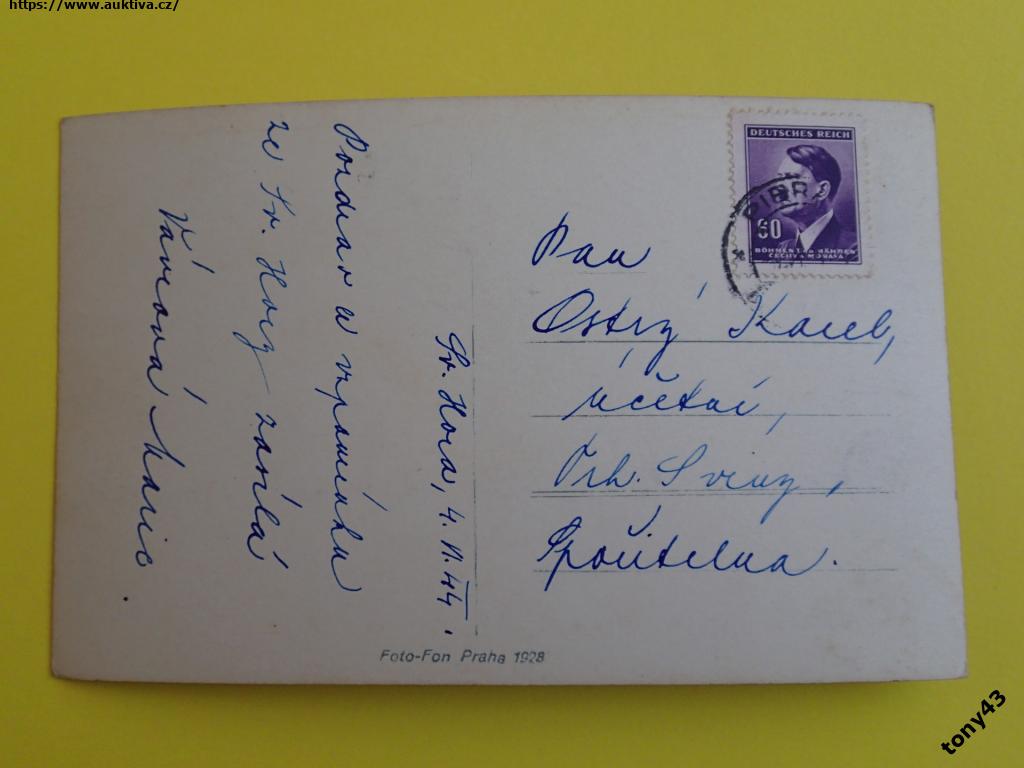 https://www.auktiva.cz/
Pozdrav a vzpomínku
ze Sv. Hory zasílá
Vávrová Marie.
Sv. Hora, 4. VI. 44.
DEUTSCHES REICH
60
BÖHMEN U. MÄHREN
ČECHY A MORAVA
PIBR
Pan
Ostrý Karel,
účetní,
Trh. Sviny,
Spořitelna.
Foto-Fon Praha 1928
tony43